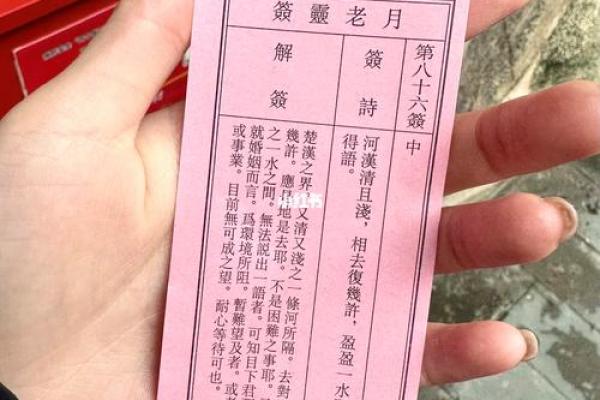 月老靈簽
第八十六簽 中
簽詩
河漢清且淺，相去復幾許，盈盈一水
得語。
解簽
楚漢之界 又清又淺之一條河所隔。去對
幾許。應 地是去耶。不是困難之事耶。
之一水之間。無法說出一語者。可知目下君
就婚姻而言。爲環境所阻。暫難望及者。或
或事業。目前無可成之望。耐心等待可也。
小红书